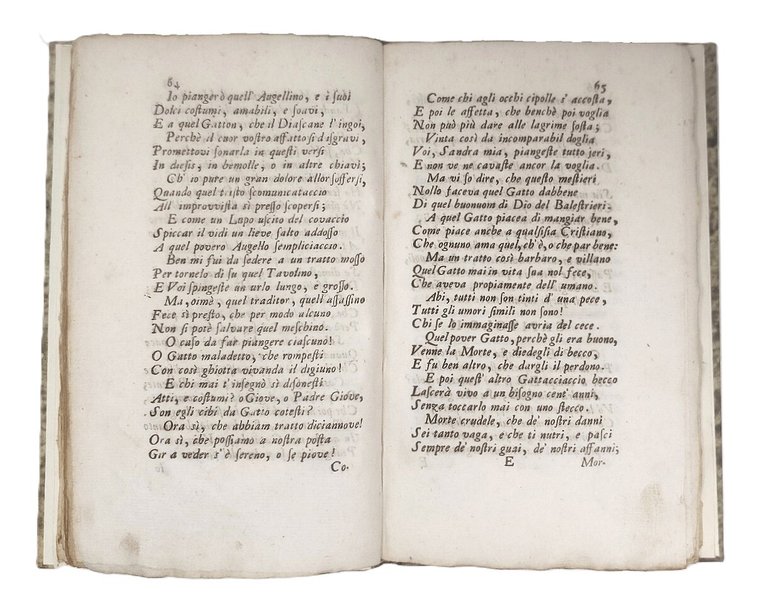 64
Io piangerò quell' Augellino, e i ſuoi
Dolci coſtumi, amabili, e ſoavi,
E a quel Gatton, che il Diaſcane l' ingoi,
Perchè il cuor voſtro affatto ſi diſgravi,
Promettovi ſonarla in queſti verſi
In dieſis, in bemolle, o in altre chiavi;
Ch' io pure un gran dolore allor ſofferſi,
Quando quel triſto ſcomunicataccio
All' improvviſta sì preſſo ſcoperſi;
E come un Lupo uſcito del covaccio
Spiccar il vidi un lieve ſalto addoſſo
A quel povero Augello ſempliciaccio.
Ben mi fui da ſedere a un tratto moſſo
Per tornelo di ſu quel Tavolino,
E Voi ſpingeſte un urlo lungo, e groſſo.
Ma, oimè, quel traditor, quell' aſſaſſino
Fece sì preſto, che per modo alcuno
Non ſi potè ſalvare quel meſchino.
O caſo da far piangere ciaſcuno!
O Gatto maladetto, che rompeſti
Con così ghiotta vivanda il digiuno!
E chi mai t' inſegnò sì diſoneſti
Atti, e coſtumi? o Giove, o Padre Giove,
Son egli cibi da Gatto coteſti?
Ora sì, che abbiam tratto diciannove!
Ora sì, che poſſiamo a noſtra poſta
Gir a veder s' è ſereno, o ſe piove!
Co-
65
Come chi agli occhi cipolle s' accoſta,
E poi le affetta, che benchè poi voglia
Non può più dare alle lagrime ſoſta;
Vinta così da incomparabil doglia
Voi, Sandra mia, piangeſte tutto jeri,
E non ve ne cavaſte ancor la voglia.
Ma vi ſo dire, che queſto meſtieri
Nollo faceva quel Gatto dabbene
Di quel buonuom di Dio del Baleſtrieri.
A quel Gatto piacea di mangiar bene,
Come piace anche a qualſiſia Criſtiano,
Che ognuno ama quel, ch' è, o che par bene:
Ma un tratto così barbaro, e villano
Quel Gatto mai in vita ſua nol fece,
Che aveva propiamente dell' umano.
Ahi, tutti non ſon tinti d' una pece,
Tutti gli umori ſimili non ſono!
Chi ſe lo immaginaſſe avria del cece.
Quel pover Gatto, perchè gli era buono,
Venne la Morte, e diedegli di becco,
E fu ben altro, che dargli il perdono.
E poi queſt' altro Gattacciaccio becco
Laſcerà vivo a un biſogno cent' anni,
Senza toccarlo mai con uno ſtecco.
Morte crudele, che de' noſtri danni
Sei tanto vaga, e che ti nutri, e paſci
Sempre de' noſtri guai, de' noſtri affanni;
E
Mor-